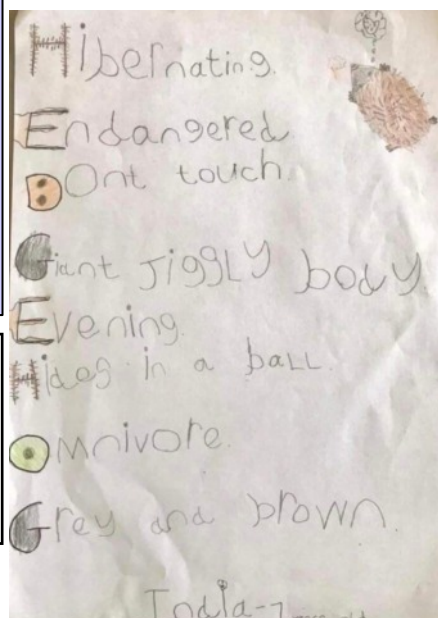 Hibernating.
Endangered
DOnt touch.
Giant Jiggly body.
Evening.
Hides in a baLL.
Omnivore.
Grey and brown.
India-7